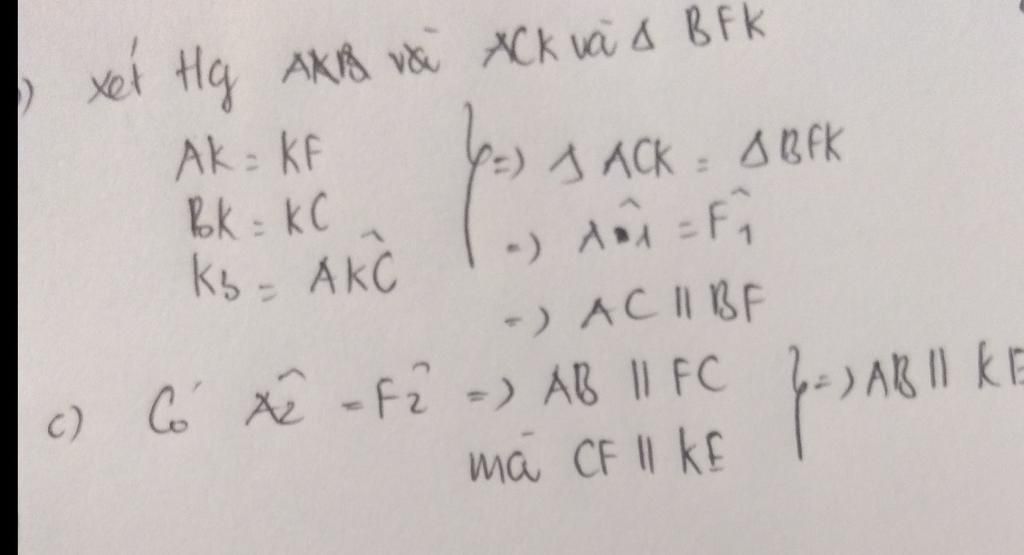 ) xét Hg AKB và ACK và Δ BFK
AK = KF
BK = KC
K3 = AKC
=> Δ ACK = Δ BFK
=> A1 = F1
=> AC || BF
c) Có A2 = F2 => AB || FC
mà CF || KE
=> AB || KE